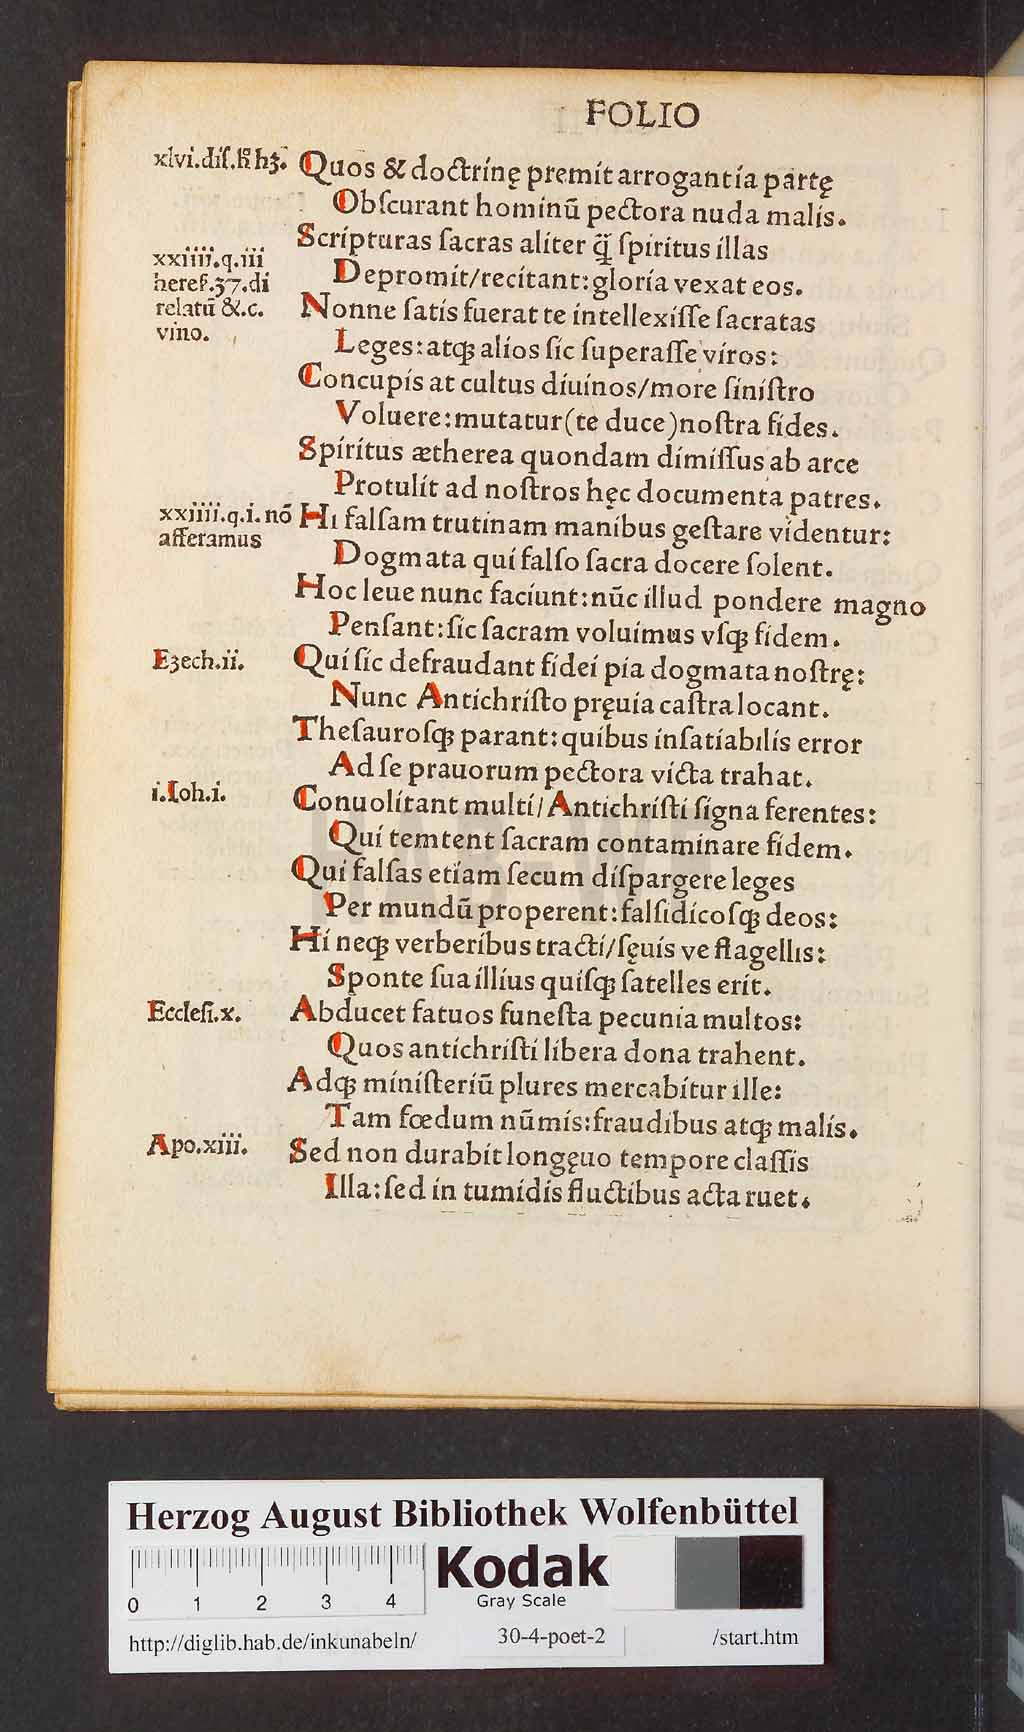 FOLIO
xlvi.diſ.ħ hꝫ. Quos & doctrinę premit arrogantia partę
Obſcurant hominū pectora nuda malis.
Scripturas ſacras aliter q̃ ſpiritus illas
xxiiii.q.iii
Depromit/recitant:gloria vexat eos.
hereſ.37.di
relatū &.c.
Nonne ſatis fuerat te intellexiſſe ſacratas
vino.
Leges:atqꝫ alios ſic ſuperaſſe viros:
Concupis at cultus diuinos/more ſiniſtro
Voluere:mutatur(te duce)noſtra fides.
Spiritus ætherea quondam dimiſſus ab arce
Protulit ad noſtros hęc documenta patres.
xxiiii.q.i.nō Hi falſam trutinam manibus geſtare videntur:
afferamus
Dogmata qui falſo ſacra docere ſolent.
Hoc leue nunc faciunt:nūc illud pondere magno
Penſant:ſic ſacram voluimus vſqꝫ fidem.
Eꝫech.ii. Qui ſic defraudant fidei pia dogmata noſtrę:
Nunc Antichriſto pręuia caſtra locant.
Theſauroſqꝫ parant:quibus inſatiabilis error
Ad ſe prauorum pectora victa trahat.
i.Ioh.i. Conuolitant multi/Antichriſti ſigna ferentes:
Qui temtent ſacram contaminare fidem.
Qui falſas etiam ſecum diſpargere leges
Per mundū properent:falſidicoſqꝫ deos:
Hi neqꝫ verberibus tracti/ſęuis ve flagellis:
Sponte ſua illius quiſqꝫ ſatelles erit.
Eccleſi.x. Abducet fatuos funeſta pecunia multos:
Quos antichriſti libera dona trahent.
Adqꝫ miniſteriū plures mercabitur ille:
Tam fœdum nūmis:fraudibus atqꝫ malis.
Apo.xiii. Sed non durabit longęuo tempore claſſis
Illa:ſed in tumidis fluctibus acta ruet.
HAB-WF
Herzog August Bibliothek Wolfenbüttel
Kodak
Gray Scale
0 1 2 3 4
http://diglib.hab.de/inkunabeln/ 30-4-poet-2 /start.htm